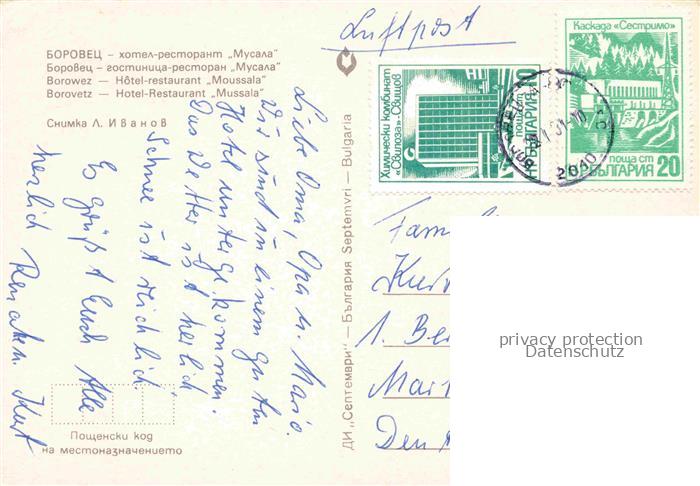 Luftpost
БОРОВЕЦ – хотел-ресторант „Мусала"
Боровец – гостиница-ресторан „Мусала"
Borowez – Hôtel-restaurant "Moussala"
Borovetz – Hotel-Restaurant "Mussala"
Снимка Л. Иванов
Liebe Oma, Opa u. Mario.
Wir sind in einem guten
Hotel untergekommen.
Das Wetter ist herlich
Schnee ist reichlich.
Es grüßt Euch Alle
herlich Renate u. Kurt
Пощенски код
на местоназначението
ДИ „Септември" — България Septemvri — Bulgaria
Химически комбинат
«Свилоза»-Свищов
поща ст 10
БЪЛГАРИЯ
Каскада «Сестримо»
поща ст
БЪЛГАРИЯ 20
2010
Fam
Kur
1. Be
Mar
Den
privacy protection
Datenschutz